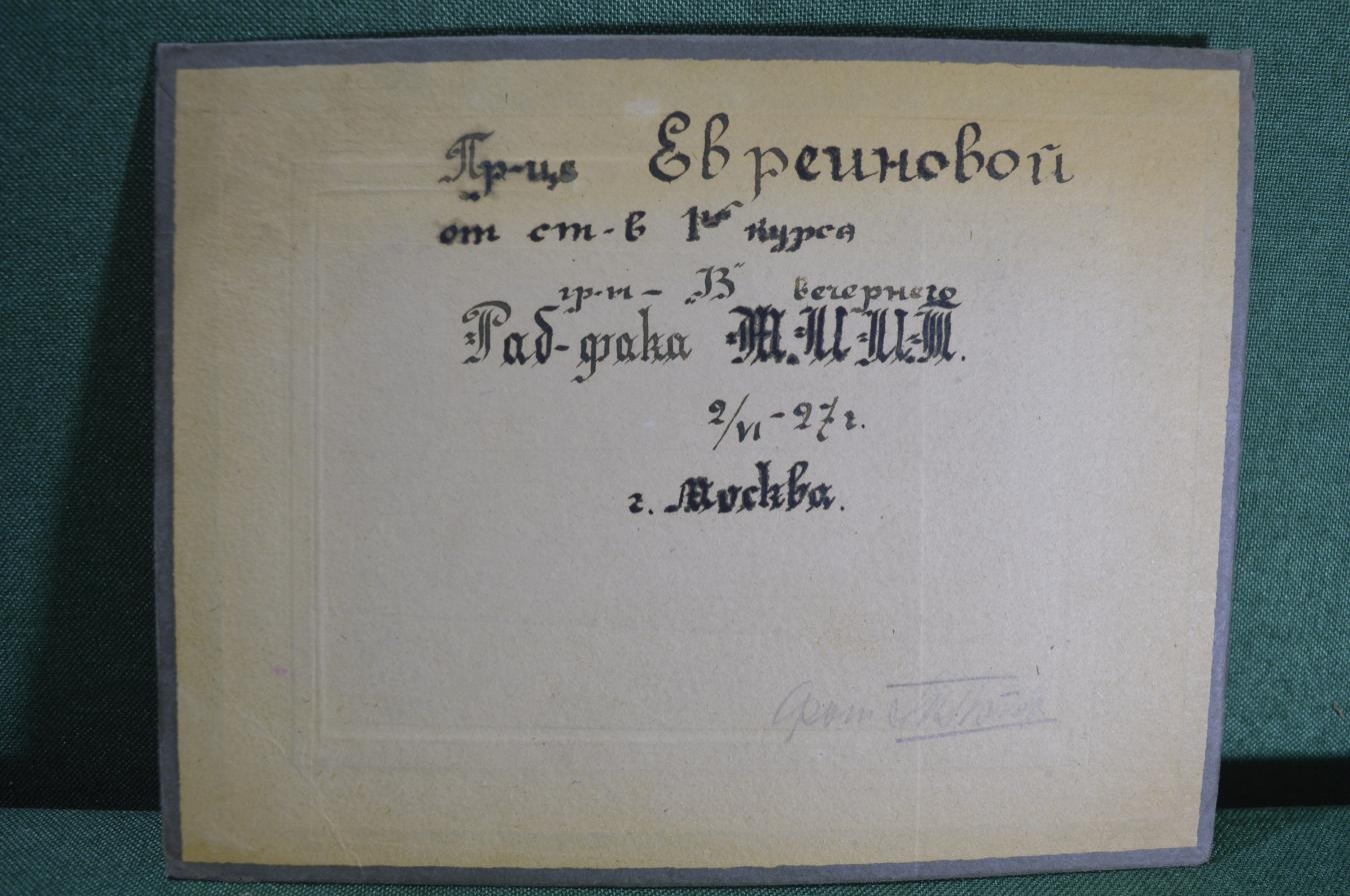 Пр-це Евреиновой
от ст-в 1го курса
гр-п- „В" вечернего
Раб-фака М.И.И.Т.
2/VI-27 г.
г. Москва.